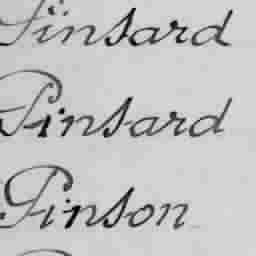 Pinsard
Pinsard
Pinson